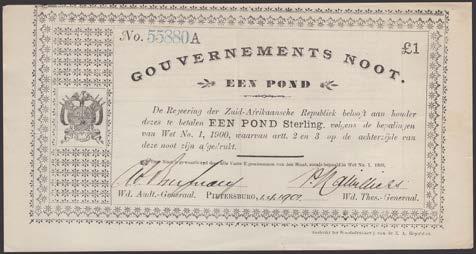 No. 55880A
£1
GOUVERNEMENTS NOOT.
EEN POND
De Regeering der Zuid-Afrikaansche Republiek belooft aan houder
dezes te betalen EEN POND Sterling, volgens de bepalingen
van Wet No. 1, 1900, waarvan artt. 2 en 3 op de achterzijde van
deze noot zijn afgedrukt.
Wd. Audt.-Generaal. PIETERSBURG, 1.4.1901. Wd. Thes.-Generaal.